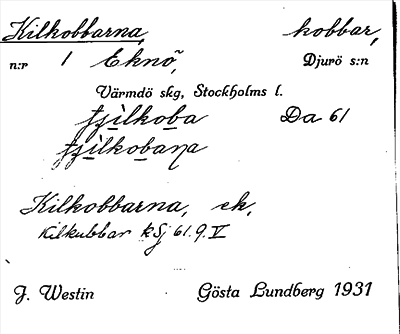 Kilkobbarna, kobbar,
n:r 1 Eknö, Djurö s:n
Värmdö skg, Stockholms l.
tşìlkoba Da 61
tşìlkobaṇa
Kilkobbarna, ek,
Kilkubbar kSj 61.9.V
J. Westin Gösta Lundberg 1931